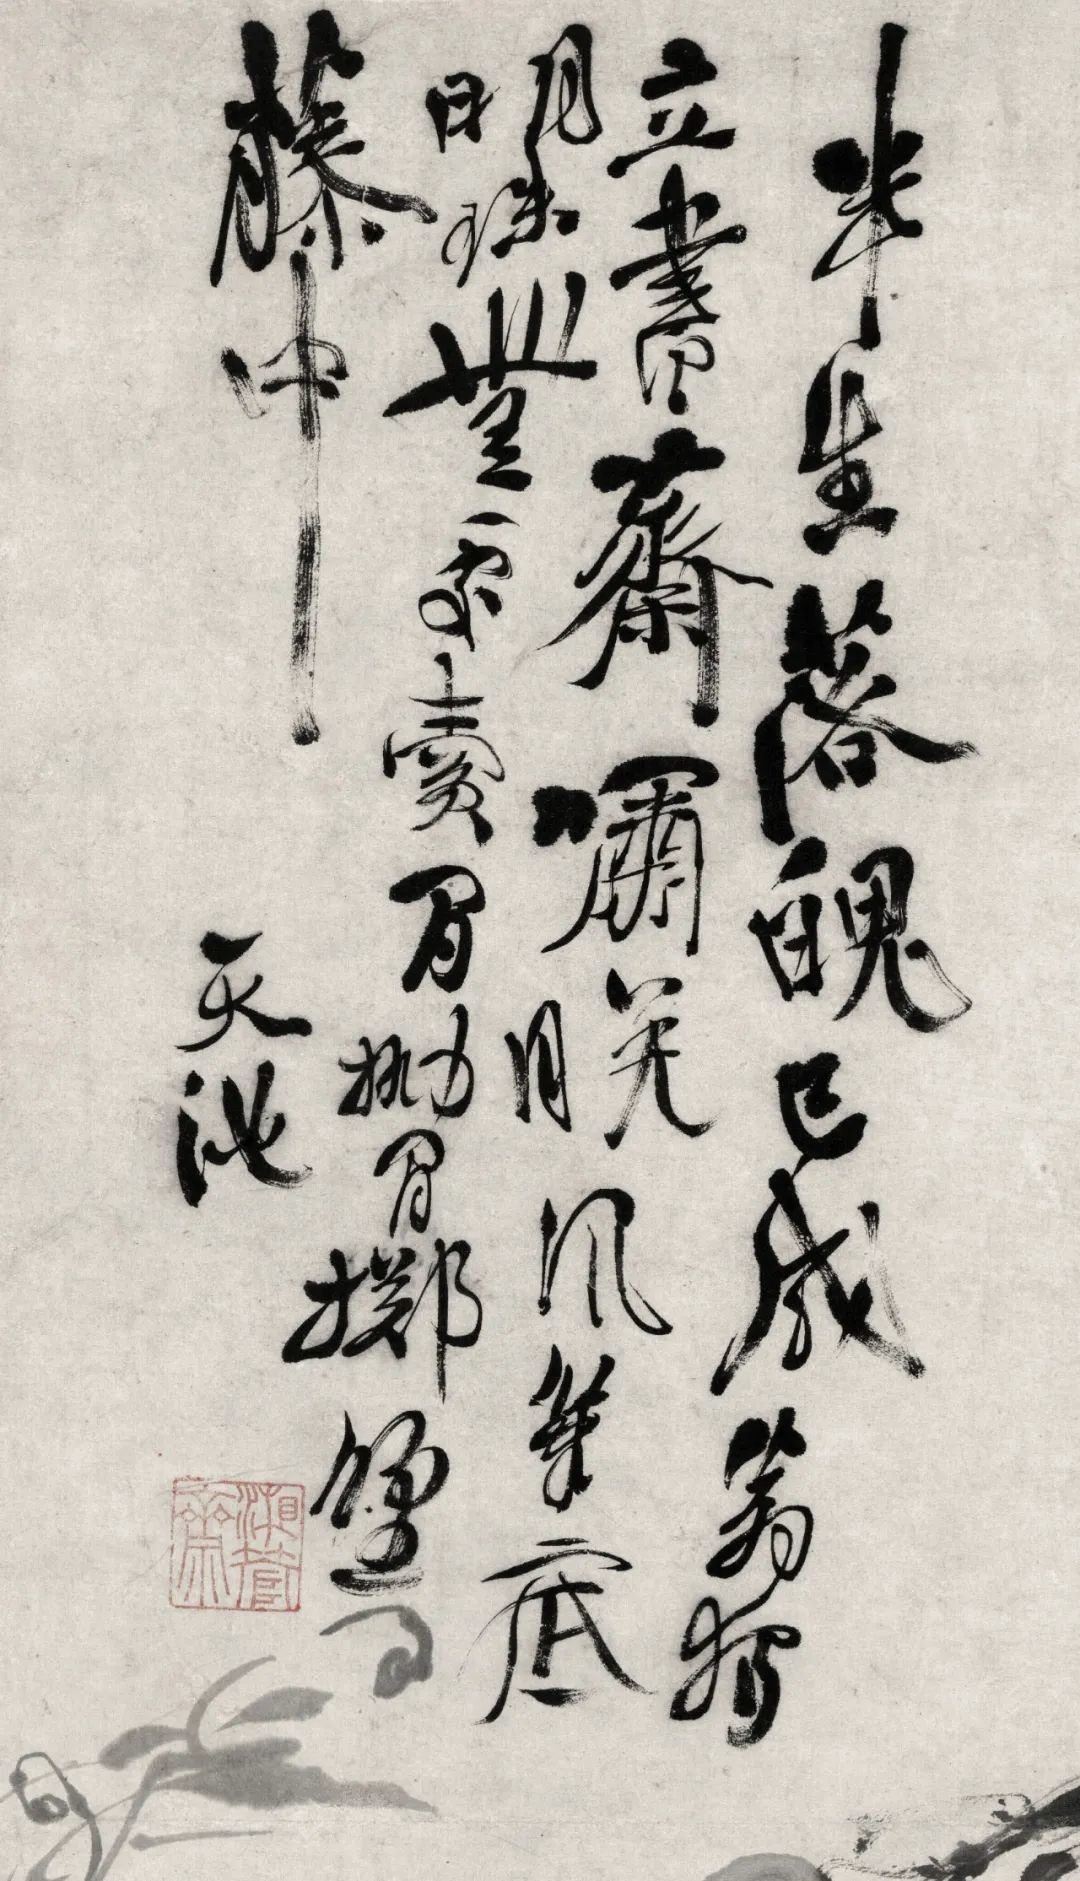 半生落魄已成翁獨
立書齋嘯晚風筆底
明珠無處賣閒拋閒擲野
藤中
天池
湘管齋